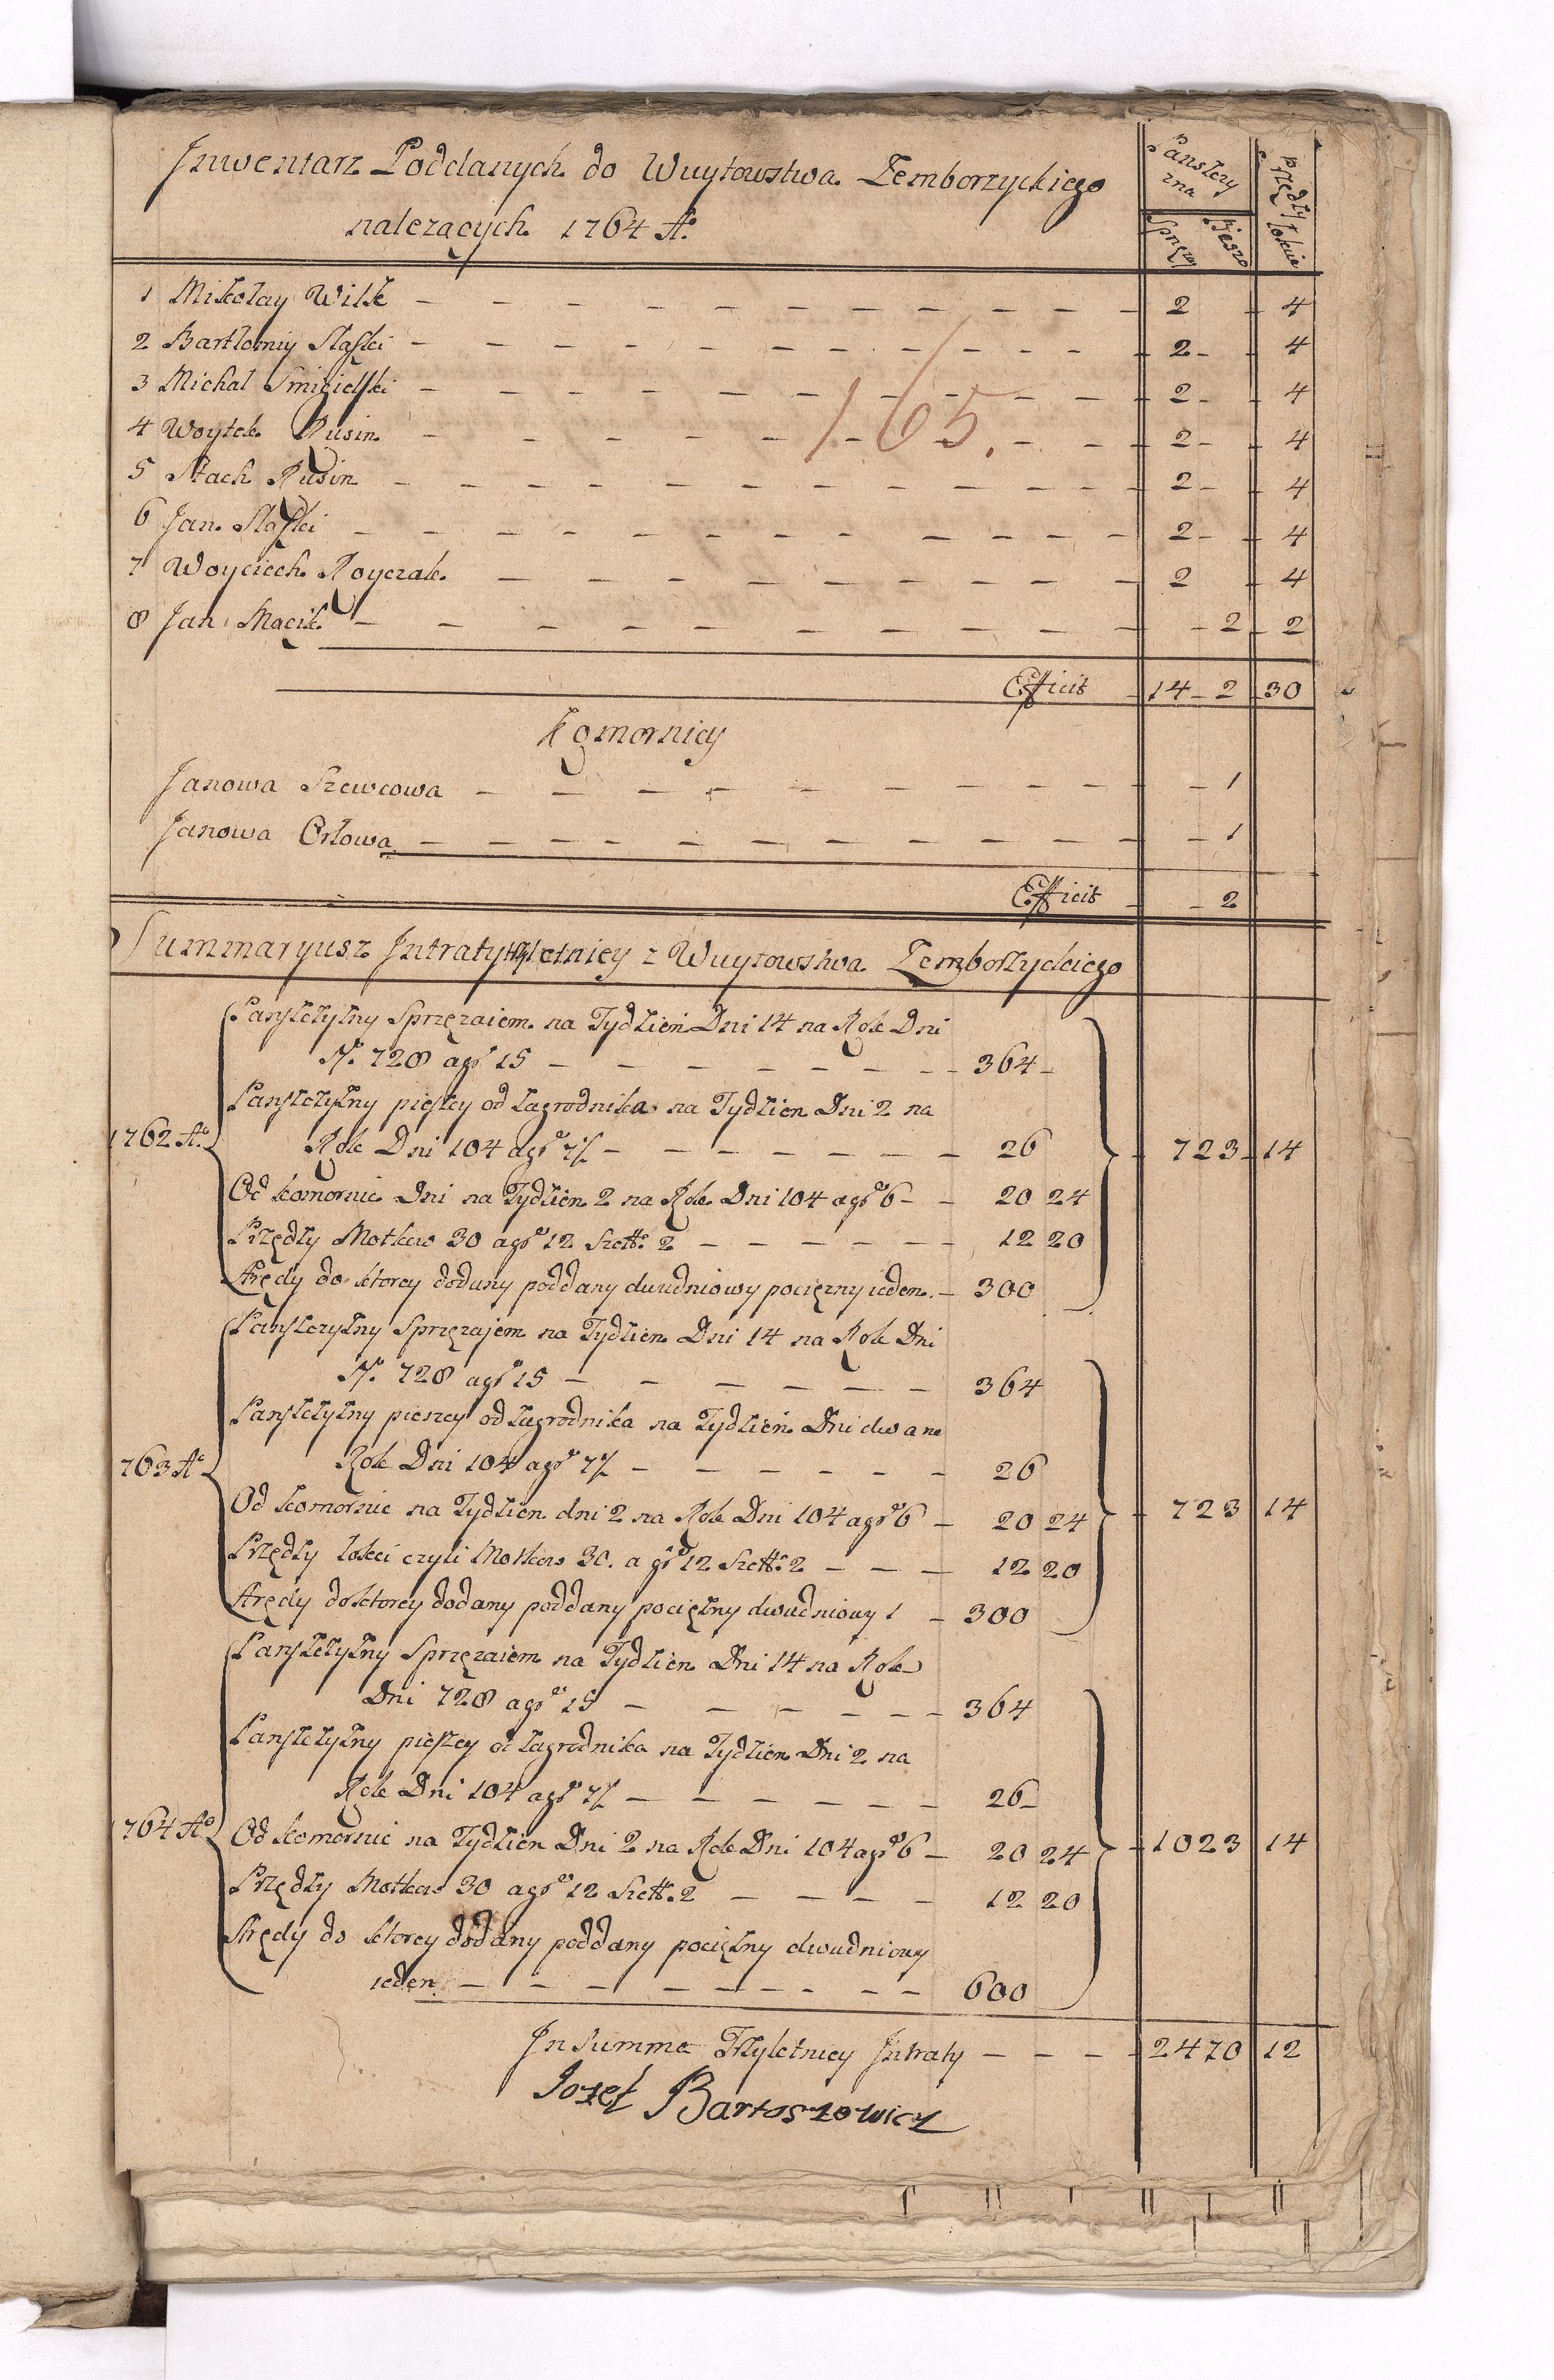 Inwentarz Poddanych do Wuytowstwa Zemborzyckiego
należących 1764 Aº
Panszczy
zna
Sprzęż Pieszo
Przędzy
łokcie
1 Mikołay Wilk 2 4
2 Bartłomiy Słaski 2 4
3 Michał Smigielski 2 4
4 Woytek Rusin 2 4
165.
5 Stach Rusin 2 4
6 Jan Słaski 2 4
7 Woyciech Royczak 2 4
8 Jan Macik 2 2
Efficit 14 2 30
Komornicy
Janowa Szewcowa 1
Janowa Orłowa 1
Efficit 2
Summaryusz Intraty letniey z Wuytowstwa Zemborzyckiego
Panszczyzny Sprzęzaiem na Tydzień Dni 14 na Rok Dni
Nº 728 a gr 15 364
Panszczyzny pieszey od zagrodnika na Tydzien Dni 2 na
1762 Aº Rok Dni 104 a gr 7/2 26 723 14
Od komornic Dni na Tydzien 2 na Rok Dni 104 a gr 6 20 24
Przędzy Motkow 30 a gr 12 Szelł. 2 12 20
Arędy do ktorey dodany poddany dwudniowy pociężny ieden 300
Panszczyzny Sprzęzajem na Tydzien Dni 14 na Rok Dni
Nº 728 a gr 15 364
Panszczyzny pieszey od zagrodnika na Tydzień Dni dwa na
1763 Aº Rok Dni 104 a gr 7/2 26
Od komornic na Tydzien dni 2 na Rok Dni 104 a gr 6 20 24 723 14
Przędzy łokci czyli Motkow 30. a gr 12 Szelł. 2 12 20
Arędy do ktorey dodany poddany pociężny dwudniowy 1 300
Panszczyzny Sprzęzaiem na Tydzien Dni 14 na Rok
Dni 728 a gr 15 364
Panszczyzny pieszey od zagrodnika na Tydzien Dni 2 na
Rok Dni 104 a gr 7/2 26
1764 Aº Od komornic na Tydzien Dni 2 na Rok Dni 104 a gr 6 20 24 1023 14
Przędzy Motkow 30 a gr 12 Szelł. 2 12 20
Arędy do ktorey dodany poddany pociężny dwudniowy
ieden 600
In Summa Trzyletniey Intraty 2470 12
Jozef Bartoszowicz